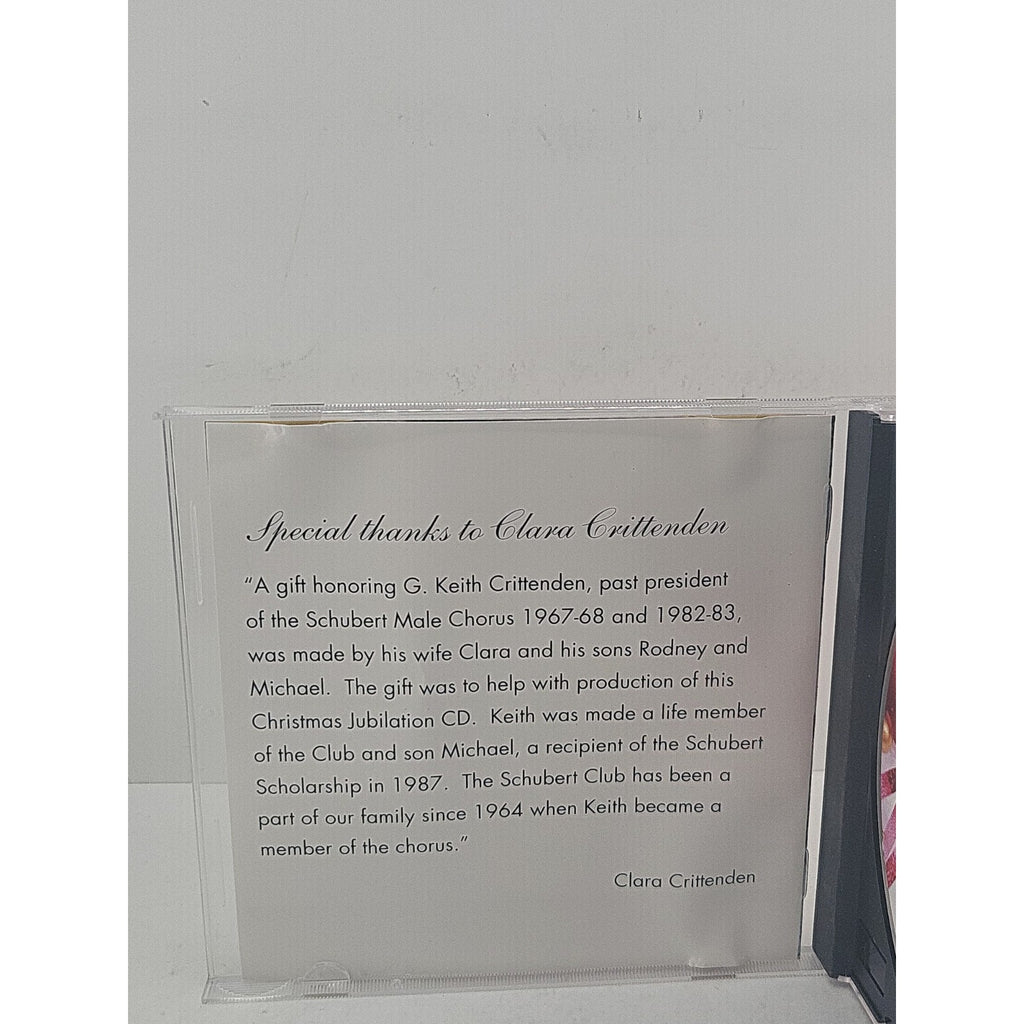 Special thanks to Clara Crittenden
“A gift honoring G. Keith Crittenden, past president
of the Schubert Male Chorus 1967-68 and 1982-83,
was made by his wife Clara and his sons Rodney and
Michael. The gift was to help with production of this
Christmas Jubilation CD. Keith was made a life member
of the Club and son Michael, a recipient of the Schubert
Scholarship in 1987. The Schubert Club has been a
part of our family since 1964 when Keith became a
member of the chorus.”
Clara Crittenden